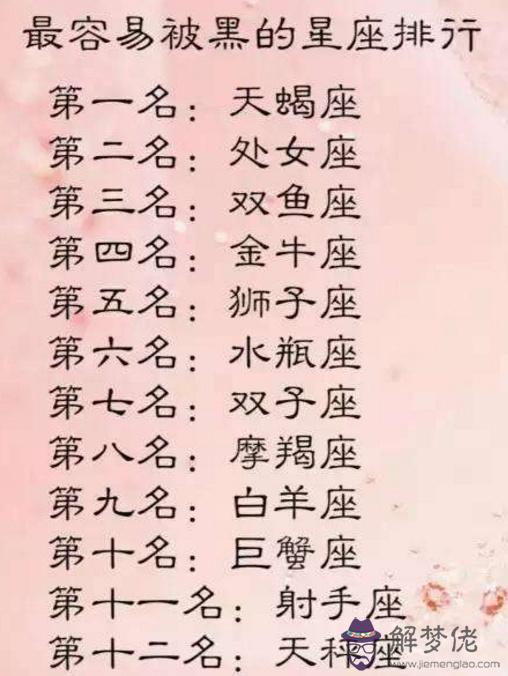 最容易被黑的星座排行
第一名：天蝎座
第二名：处女座
第三名：双鱼座
第四名：金牛座
第五名：狮子座
第六名：水瓶座
第七名：双子座
第八名：摩羯座
第九名：白羊座
第十名：巨蟹座
第十一名：射手座
第十二名：天秤座
解梦佬
www.jiemenglao.com